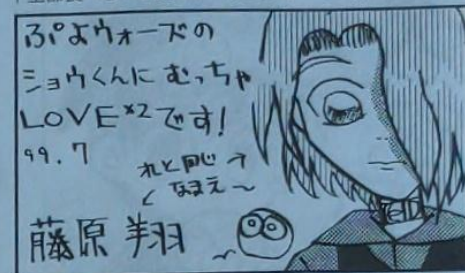 ぷよウォーズの
ショウくんに むっちゃ
LOVE×2です!
99.7
れと同じ→
なまえ〜
藤原 翔